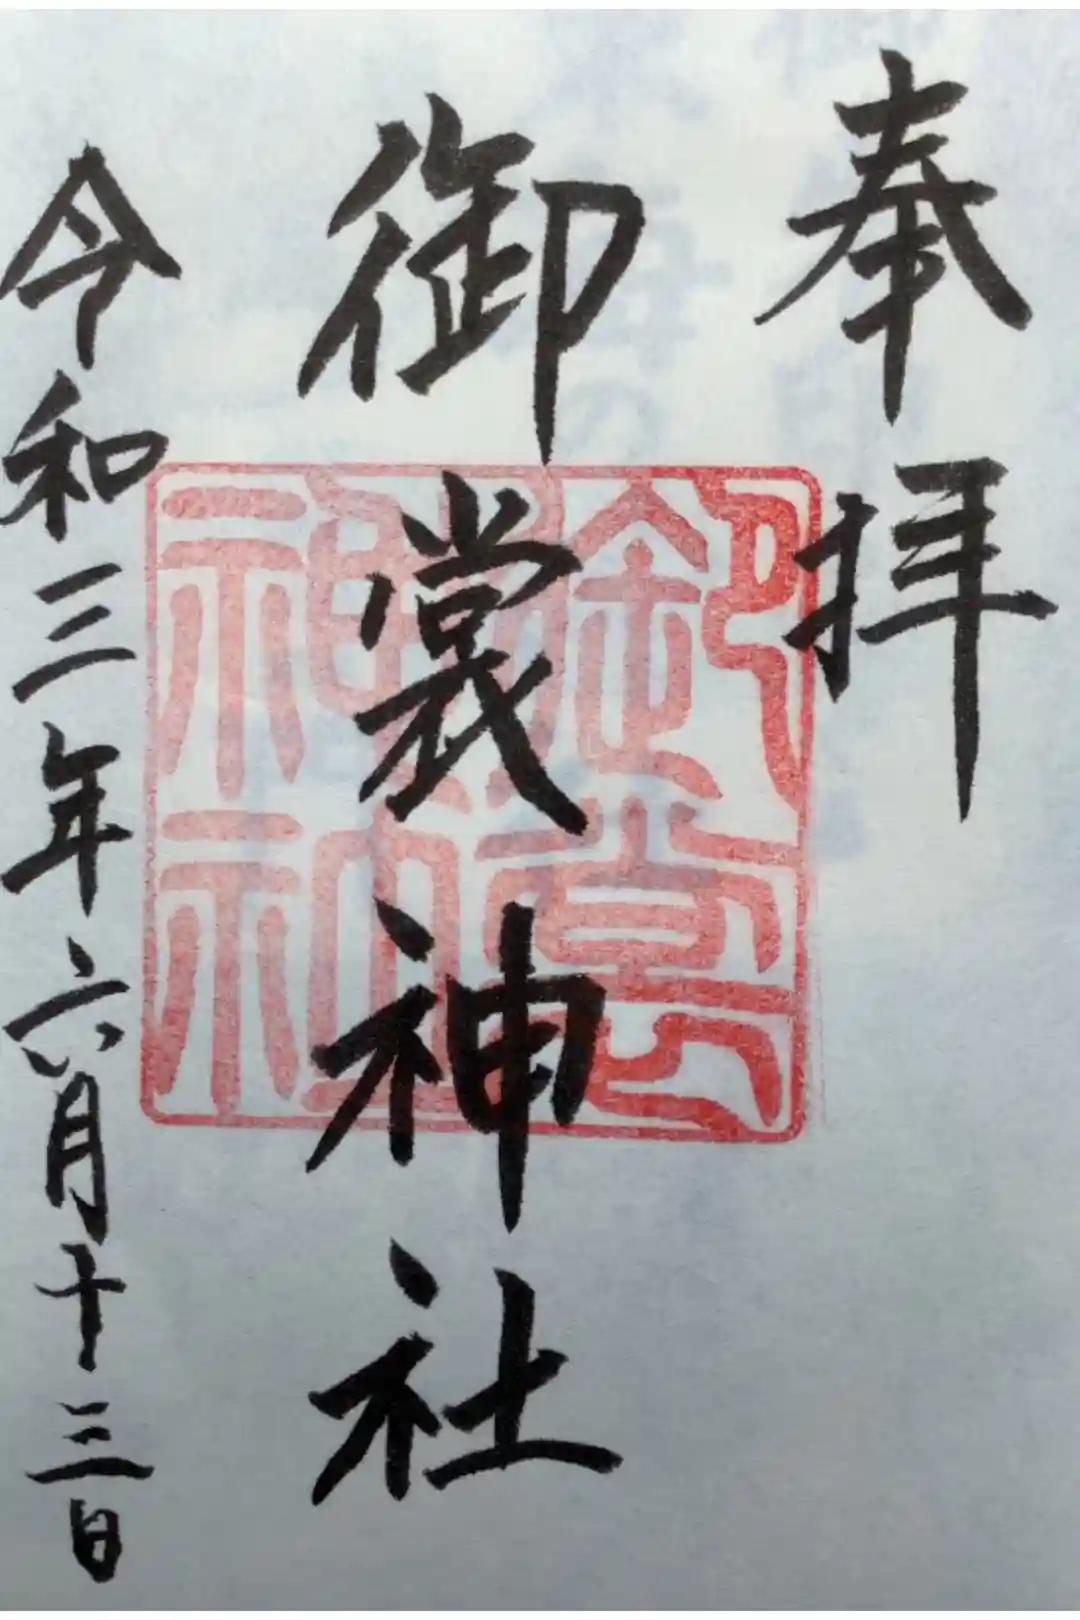 奉拝
御裳神社
令和三年六月十三日
御裳神社